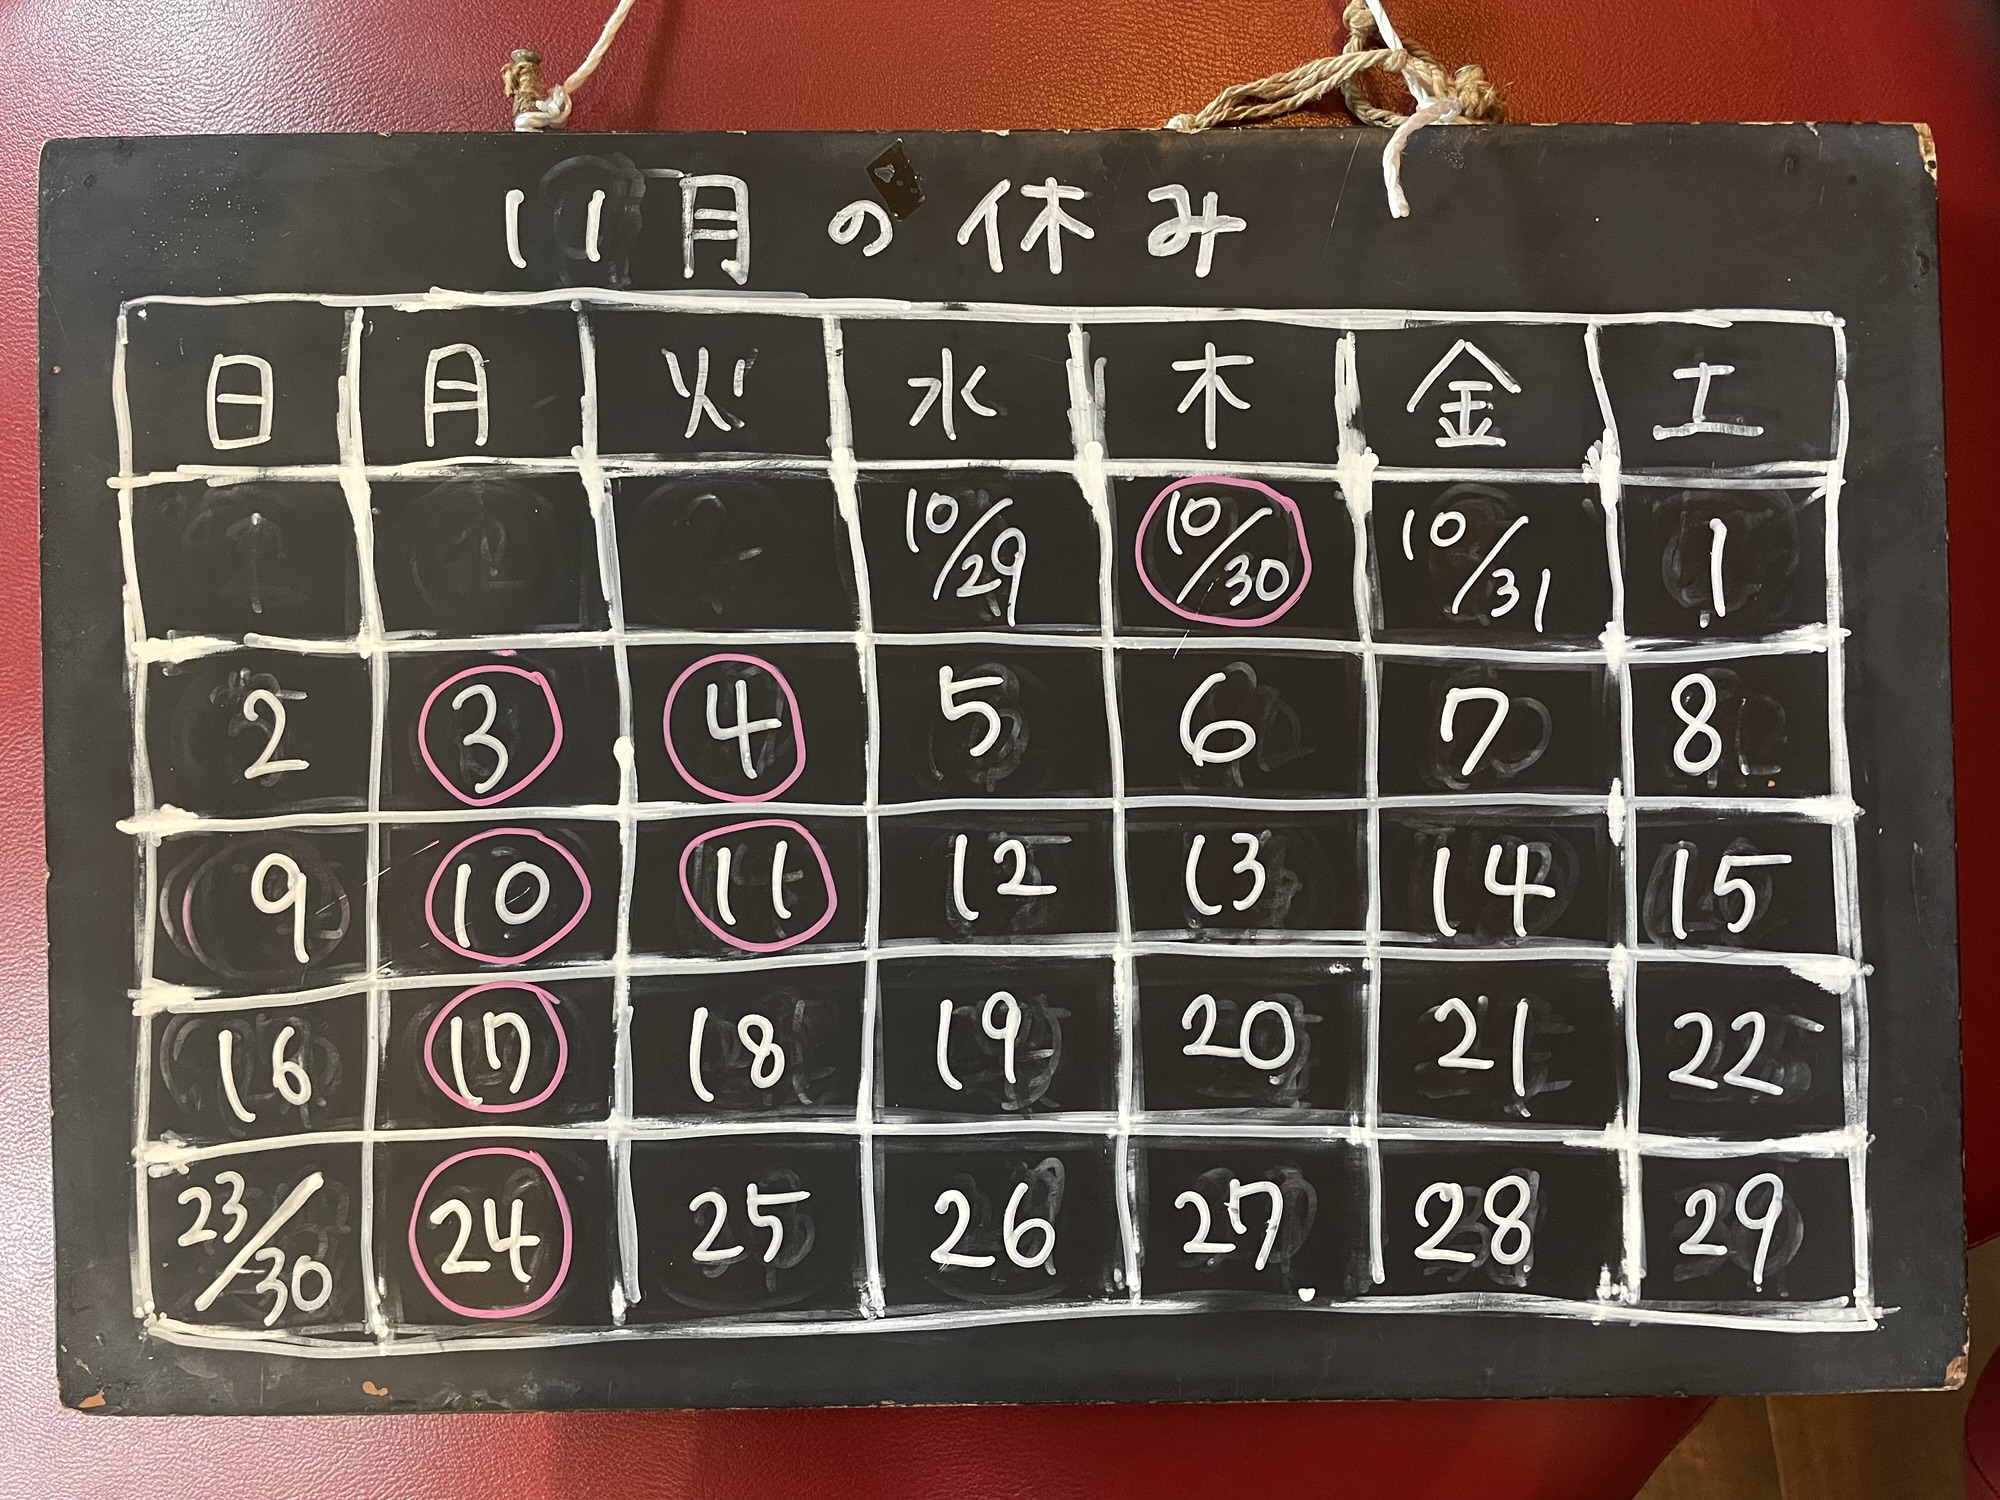 11月の休み
日 月 火 水 木 金 土
10/29 10/30 10/31 1
2 3 4 5 6 7 8
9 10 11 12 13 14 15
16 17 18 19 20 21 22
23/30 24 25 26 27 28 29